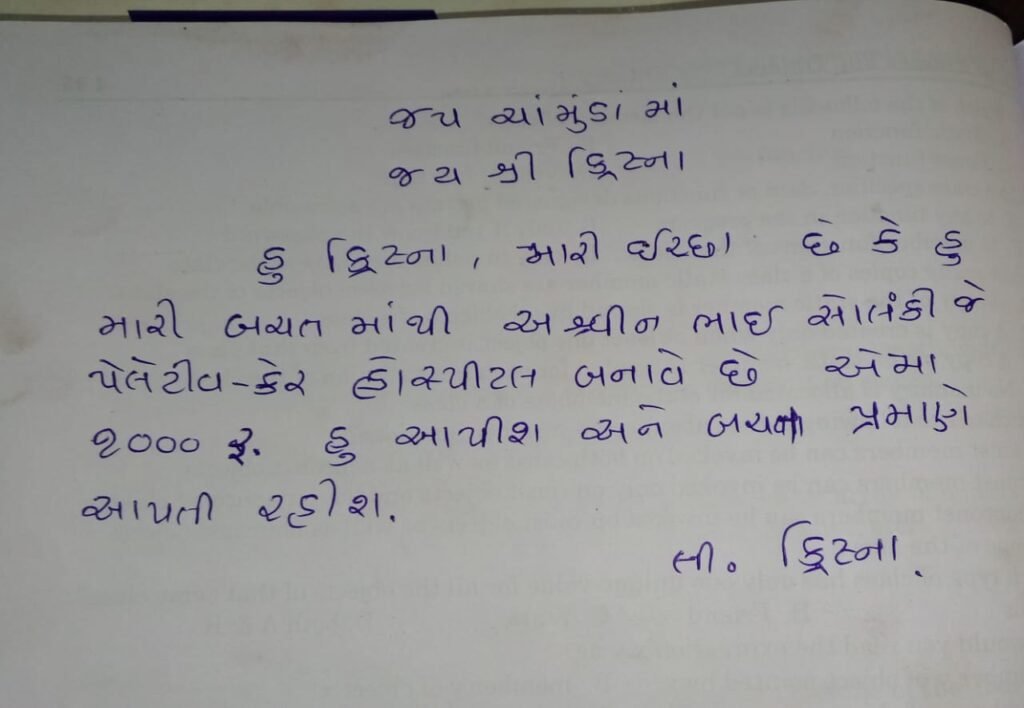 જય ચાંમુંડા માં
જય શ્રી ક્રિષ્ના
હુ ક્રિષ્ના, મારી ઈચ્છા છે કે હુ
મારી બચત માંથી અશ્વીન ભાઇ સોલંકી જે
પેલેટીવ-કેર હોસ્પીટલ બનાવે છે એમા
૧૦૦૦ રૂ. હુ આપીશ અને બચત પ્રમાણે
આપતી રહીશ.
લી. ક્રિષ્ના.